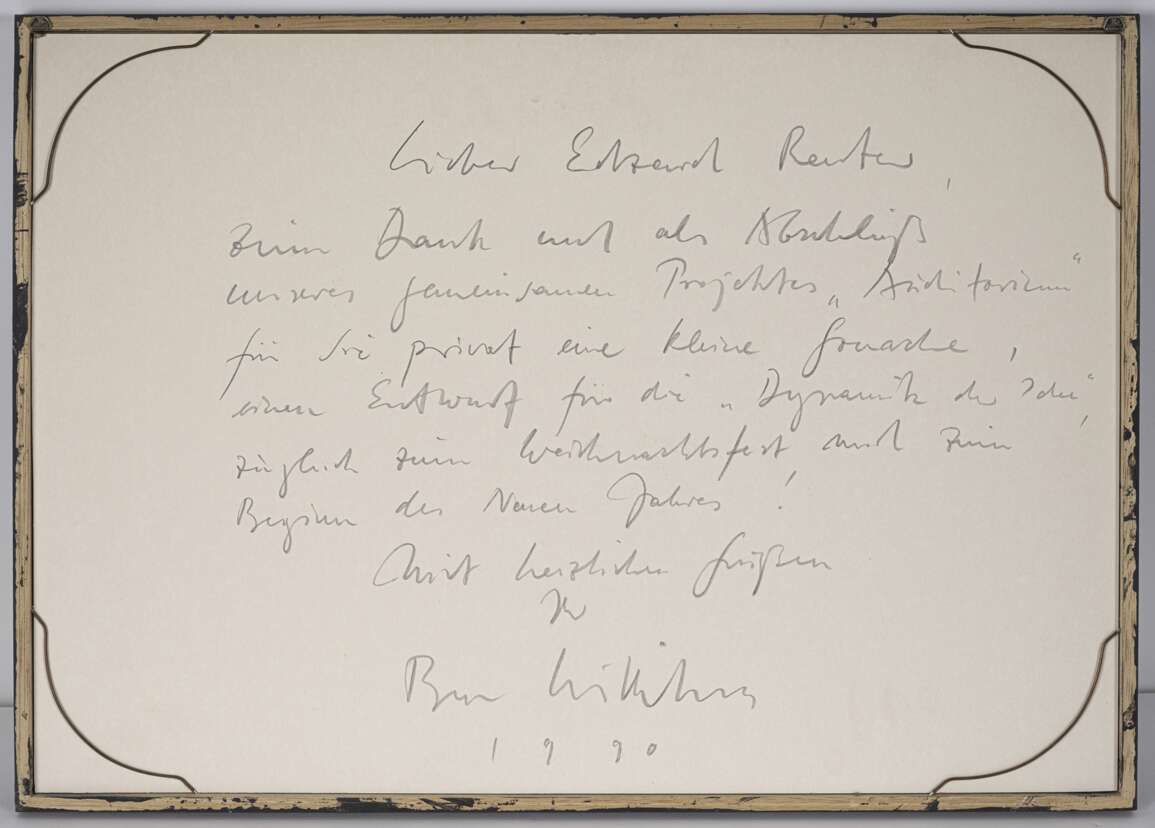 Lieber Edzard Reuter,
zum Dank und als Abschluß
unseres gemeinsamen Projektes „Auditorium“
für Sie privat eine kleine Gouache,
einen Entwurf für die „Dynamik der Idee“,
zugleich zum Weihnachtsfest und zum
Beginn des Neuen Jahres!
Mit herzlichen Grüßen
Ihr
Ben Willikens
1990